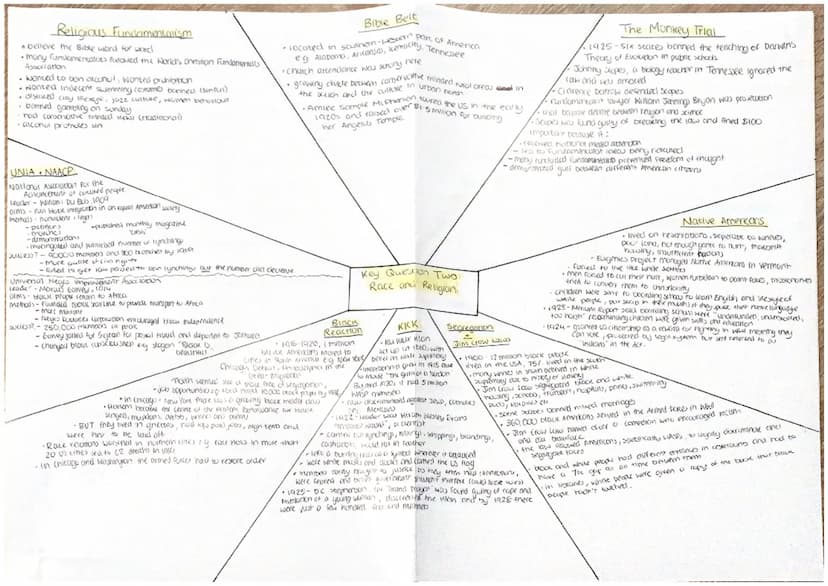 Religious Fundamentalism
• believe the Bible word for word
• many fundamentalists followed the World's Christian Fundamentals
Association
• wanted to ban alcohol, wanted prohibition
• wanted indecent swimming costumes banned
• disliked city lifestyle, jazz culture, women behaviour
• banned gambling on Sunday
• had conservative minded views (traditional)
• alcohol promotes sin
Bible Belt
• located in southern-western part of America
e.g. Alabama, Arkansas, Kentucky, Tennessee
• Church attendance was strong here
• growing divide between conservative minded rural areas
the south and the culture in urban north
• Aimee Semple McPherson toured the US in the early
1920s and raised over $1.5 million for building
her Angelus Temple
The Monkey Trial
• 1925 - six states banned the teaching of Darwin's
Theory of Evolution in public schools
• Johnny Scopes, a biology teacher in Tennessee ignored the
law and was arrested
• Clarence Darrow defended Scopes
• Fundamentalist lawyer William Jennings Bryan was prosecution
• trial became debate between religion and science
• Scopes was found guilty of breaking the law and fined $100
Important because it:
- received national media attention
- led to Fundamentalist ideas being ridiculed
- many ridiculed Fundamentalists prevented freedom of thought
- demonstrated gulf between different American citizens
UNIA + NAACP
National Association for the
Advancement of coloured people
Leader - William Du Bois, 1909
aims - full black integration in an equal American society
methods - nonviolent + legal
- petitions
- published monthly magazine
- marches
'Crisis'
- demonstrations
- investigated and publicised number of lynchings
success? - 90,000 members and 300 branches by
- more aware of civil rights
- failed to get law passed to ban lynchings but the number did decrease
Universal Negro Improvement Association
Leader - Marcus Garvey, 1914
aims - black people return to Africa
methods - funded Black Star Line to provide transport to Africa
- more militant
- Negro Factories Corporation encouraged black independence
success? - 250,000 members in peak
- Garvey jailed for 5 years for postal fraud and deported to Jamaica
- changed black consciousness e.g. slogan "Black is
beautiful"
Key Question Two:
Race and Religion
Native Americans
• lived on reservations, separate to whites,
poor land, not enough game to hunt, inadequate
housing, insufficient
• Eugenics Project managed Native Americans in Vermont
• forced to live like white settlers
• men forced to cut their hair, women forbidden to paint faces, missionaries
tried to convert them to Christianity
• children were sent to boarding school to learn English and lifestyle of
white people, put soap in their mouths if they spoke their native language
• 1928 - Meriam Report said boarding schools were "underfunded, understaffed,
too harsh"
• 1924 - granted US citizenship as a reward for bravery in WWI meaning they
can vote, protected by legal system but still referred to as
'Indians' in the Act.
Black
Reaction
• 1916-1920, 1 million
black Americans moved to
cities in North America e.g. New York,
Chicago, Detroit, Philadelphia in the
Great Migration
• North wanted
• job opportunities
• in Chicago + New York there was a growing black middle class
• Harlem became the centre of the Harlem Renaissance for black
singers, musicians, artists, writers and poets
• BUT they lived in ghettos, had low paid jobs, high rents and
were first to be laid off
• Race reactions worsened in northern cities e.g. race riots in more than
20 US cities led to
• in Chicago and Washington the armed forces had to restore order
KKK
• Ku Klux Klan
set up in 1860s with
belief in white supremacy
• membership grew in 1915 due
to movie "The Birth of a Nation"
• By mid 1920s it had 5 million
WASP members
• new discrimination against Jews, Catholics
and Mexicans
• 1922 - leader was Hiram Wesley Evans
"Imperial Wizard", a dentist
• carried out lynchings, rapings, whippings, branding,
castrations
• left a burning cross as a symbol wherever it attacked
• wore white masks and cloaks and carried the US flag
• members rarely brought to justice as they often had connections,
• 1925 - DC Stephenson, the 'Grand Dragon' was found guilty of rape and
mutilation of a young woman, discredited the Klan and by 1928 there
were just a few hundred thousand members
Segregation
+
Jim Crow Laws
• 1900 12 million black people
lived in the USA, 75% lived in the South
• many whites in south believed in white
supremacy due to history of slavery
• Jim Crow laws segregated black and white
housing, schools, theatres, hospitals, prisons, swimming
pools, hotels etc
• some states banned mixed marriages
• 360,000 black Americans served in the armed forces in WWI
• Jim Crow laws named after a comedian who encouraged racism
and did blackface
• the laws allowed Americans, specifically whites, to legally discriminate and
segregate races
• Black and white people had different entrances in restaurants and had to
have a 15 ft gap at all time between them
people hadn't touched.